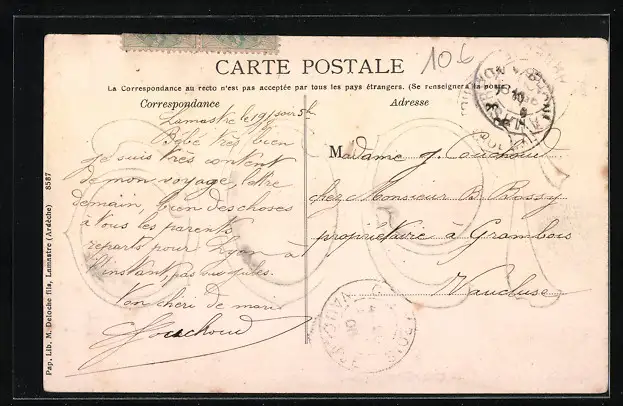 106
CARTE POSTALE
La Correspondance au recto n'est pas acceptée par tous les pays étrangers. (Se renseigner à la poste)
Correspondance
Adresse
Lamastre le 19/ soir 5h
Bébé très bien
je suis très content
de mon voyage, lettre
demain, bien des choses
à tous les parents
reparts pour Lyon à
l'instant pas vu Jules.
Ton chéri de mari
Madame J.
chez Monsieur B. Bossy
propriétaire à Grambois
Vaucluse
Pap. Lib. M. Deloche fils, Lamastre (Ardèche) 8587